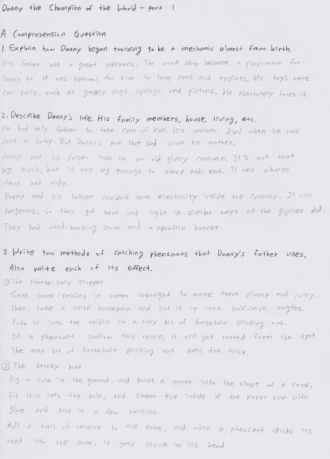 Danny the Champion of the World - part 1
A Comprehension Question
1. Explain how Danny began training to be a mechanic almost from birth.
His father was a great mechanic. The work shop became a playground for
Danny so it was natural for him to love cars and engines. His toys were
car parts, such as greasy cogs, springs, and pistons. He absolutely loves it.
2. Describe Danny's life. His family members, house, living, etc.
He had only father to take care of him. His mother died when he was
just a baby. But Danny's not that sad about his mother.
Danny and his father lives in an old gypsy caravan. It's not that
big much, but it was big enough to sleep and eat. It was always
clean and tidy.
Danny and his father couldn't have electricity inside the caravan. It was
dangerous. So they got heat and light in similar ways as the gypsies did.
They had wood-burning stove and a paraffin burner.
3. Write two methods of catching pheasants that Danny's father uses,
Also write each of its effect.
① The Horse-hair stopper
Soak some raisins in water overnight to make them plump and juicy.
Then, take a stiff horsehair and cut it up into half-inch lengths.
Push it into the raisin so a tiny bit of horsehair sticking out.
If a pheasant swallow this raisin, it will get rooted from the spot.
The tiny bit of horsehair sticking out does the trick.
② The sticky hat
Dig a hole in the ground, and twist a paper into the shape of a cone.
Fit this into the hole, and smear the inside of the paper cup with
glue and drop in a few raisins.
Add a trail of raisins to the cone, and when a pheasant sticks its
head into the cone, it gets stuck in its head.